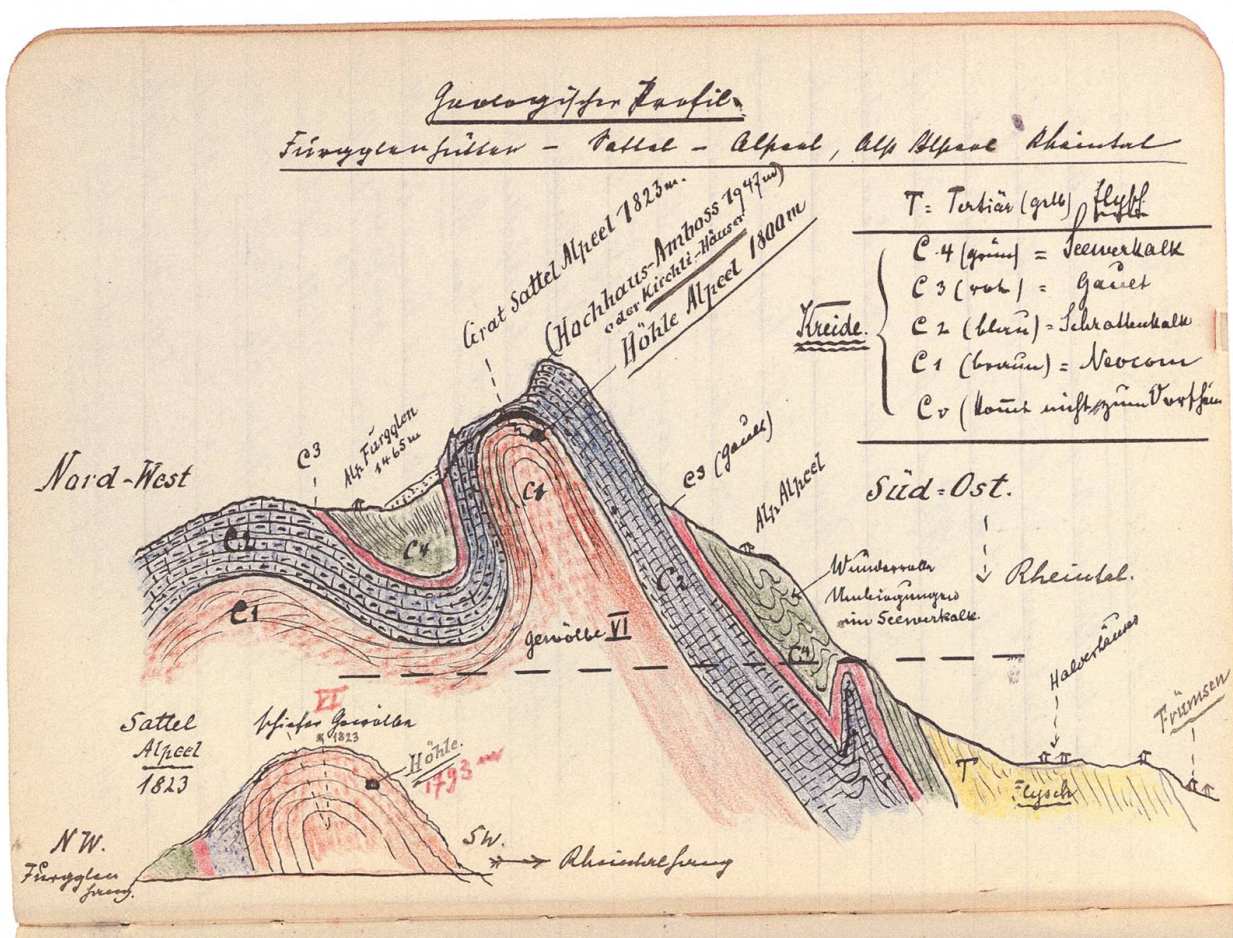 Geologisches Profil.
Furgglenhütten - Sattel - Alpeel, Alp Alpeel Rheintal
T = Tertiär (gelb) Flysch
Kreide.
C.4 (grün) = Seewerkalk
C3 (rot) = Gault
C2 (blau) = Schrattenkalk
C1 (braun) = Neocom
Co (kommt nicht zum Vorschein
Grat Sattel Alpeel 1823 m.
(Hochhaus-Amboss 1947 m)
oder Kirchli-Häuser
Höhle Alpeel 1800 m
Nord-West
C3
Alp Furgglen
1465 m
C3 (Gault)
Alp Alpeel
Süd=Ost.
Rheintal.
Wundervolle
Umbiegungen
im Seewerkalk.
C2
C4
C1
C1
C2
C4
Gewölbe VI
Halderhäuser
Frümsen
T
Flysch
Sattel
Alpeel
1823
VI
schiefes Gewölbe
1823
Höhle.
1793 m
NW.
Furgglen
hang.
SW.
Rheintalhang